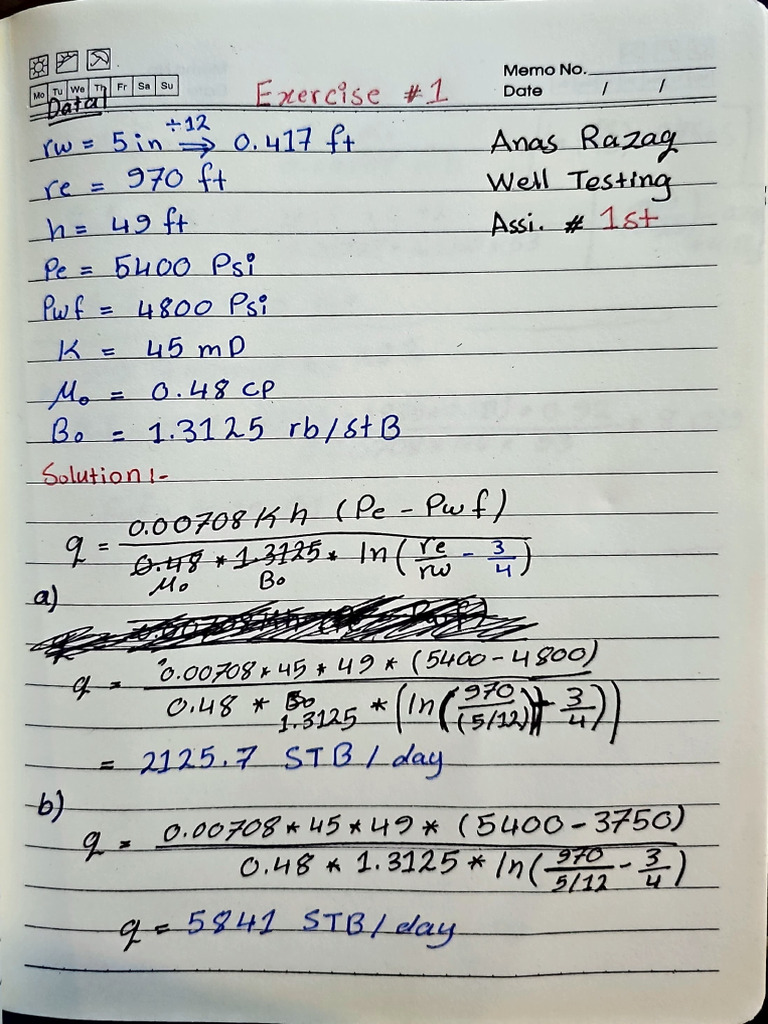 Memo No.
Mo Tu We Th Fr Sa Su
Date / /
Exercise #1
Data
rw = 5 in ÷12 ⇒ 0.417 ft
Anas Razaq
re = 970 ft
Well Testing
h = 49 ft
Assi. # 1st
Pe = 5400 Psi
Pwf = 4800 Psi
K = 45 mD
Mo = 0.48 cp
Bo = 1.3125 rb/stB
Solution:-
q = 0.00708 K h (Pe - Pwf)
0.48 * 1.3125 * ln(re/rw - 3/4)
Mo Bo
a)
q = 0.00708 * 45 * 49 * (5400 - 4800)
0.48 * 1.3125 * (ln(970/(5/12)) - 3/4))
= 2125.7 STB / day
b)
q = 0.00708 * 45 * 49 * (5400 - 3750)
0.48 * 1.3125 * ln(970/5/12 - 3/4)
q = 5841 STB / day